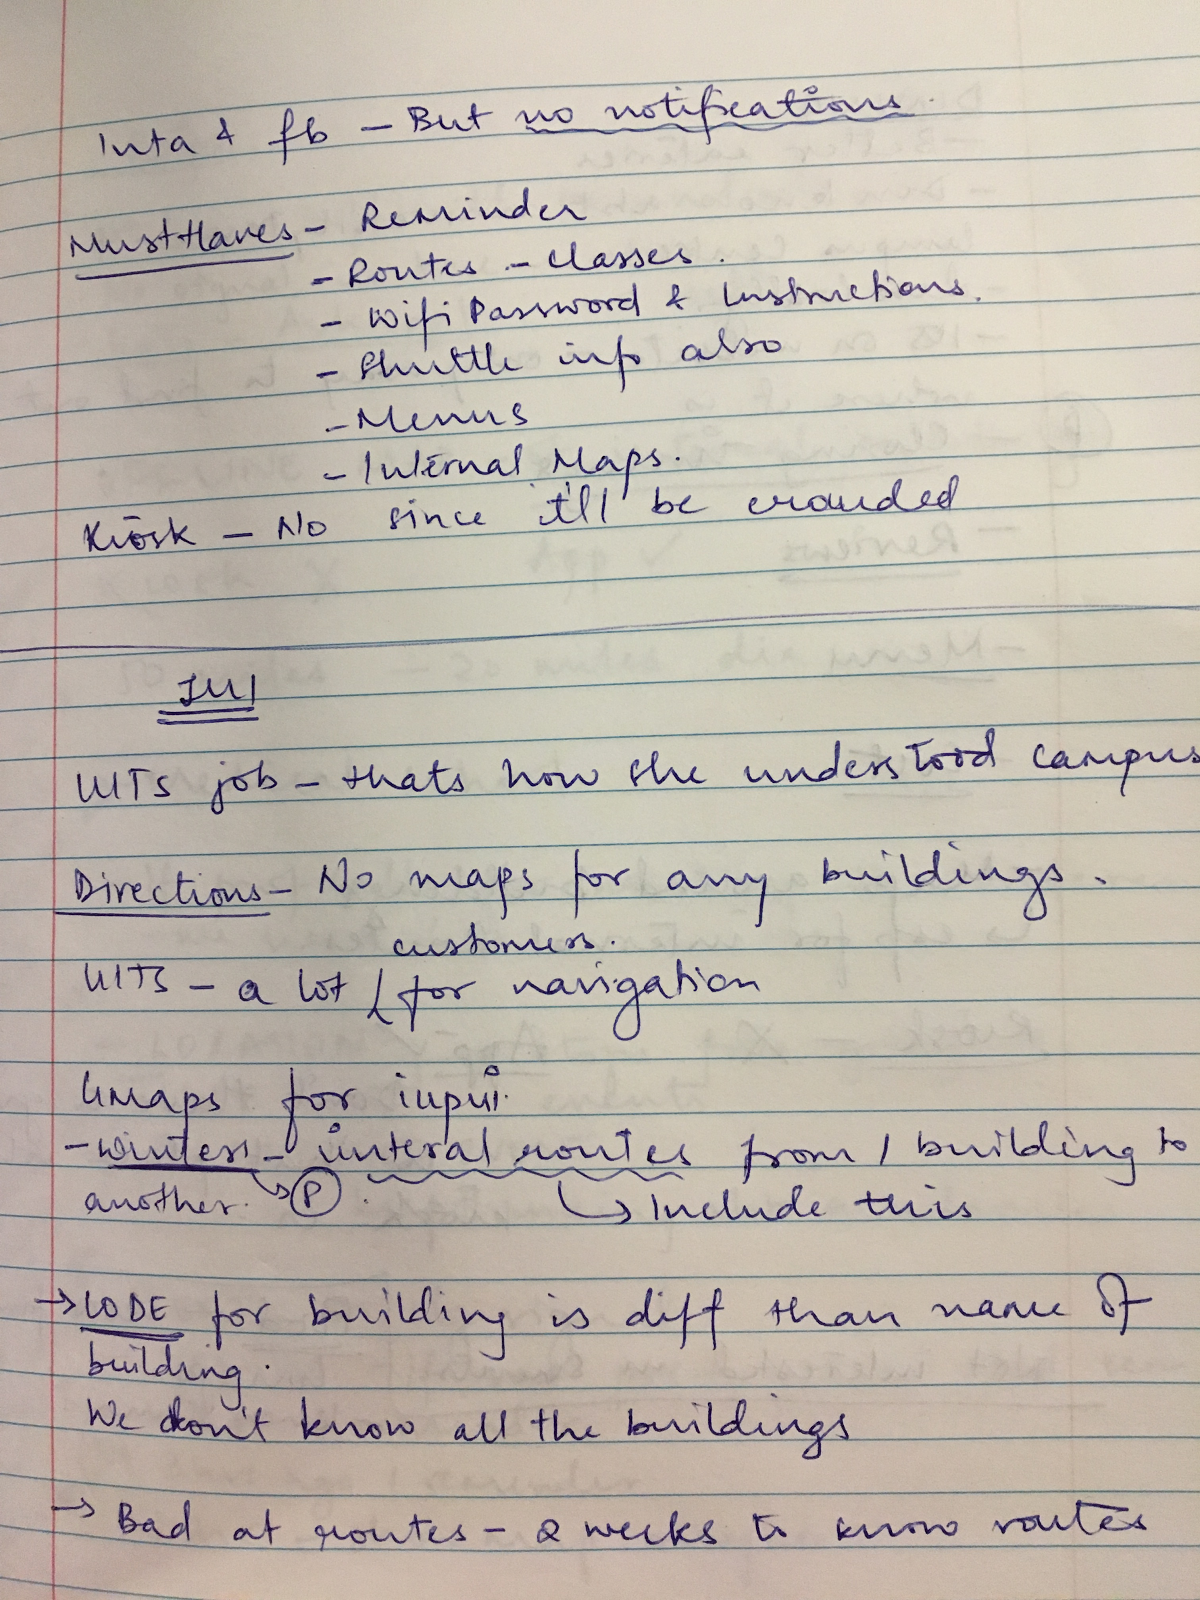 Inta & fb - But no notifications.
Must Haves - Reminder
- Routes - Classes.
- Wifi Password & Instructions.
- Shuttle info also
- Menus
- Internal Maps.
Kiosk - No since it'll be crowded
UITS job - thats how she understood campus
Directions - No maps for any buildings.
customers.
UITS - a lot for navigation
Gmaps for
- Winters - interal routes from 1 building to
another. P.
Include this
→ CODE for building is diff than name of
building.
We don't know all the buildings
→ Bad at routes - 2 weeks to know routes